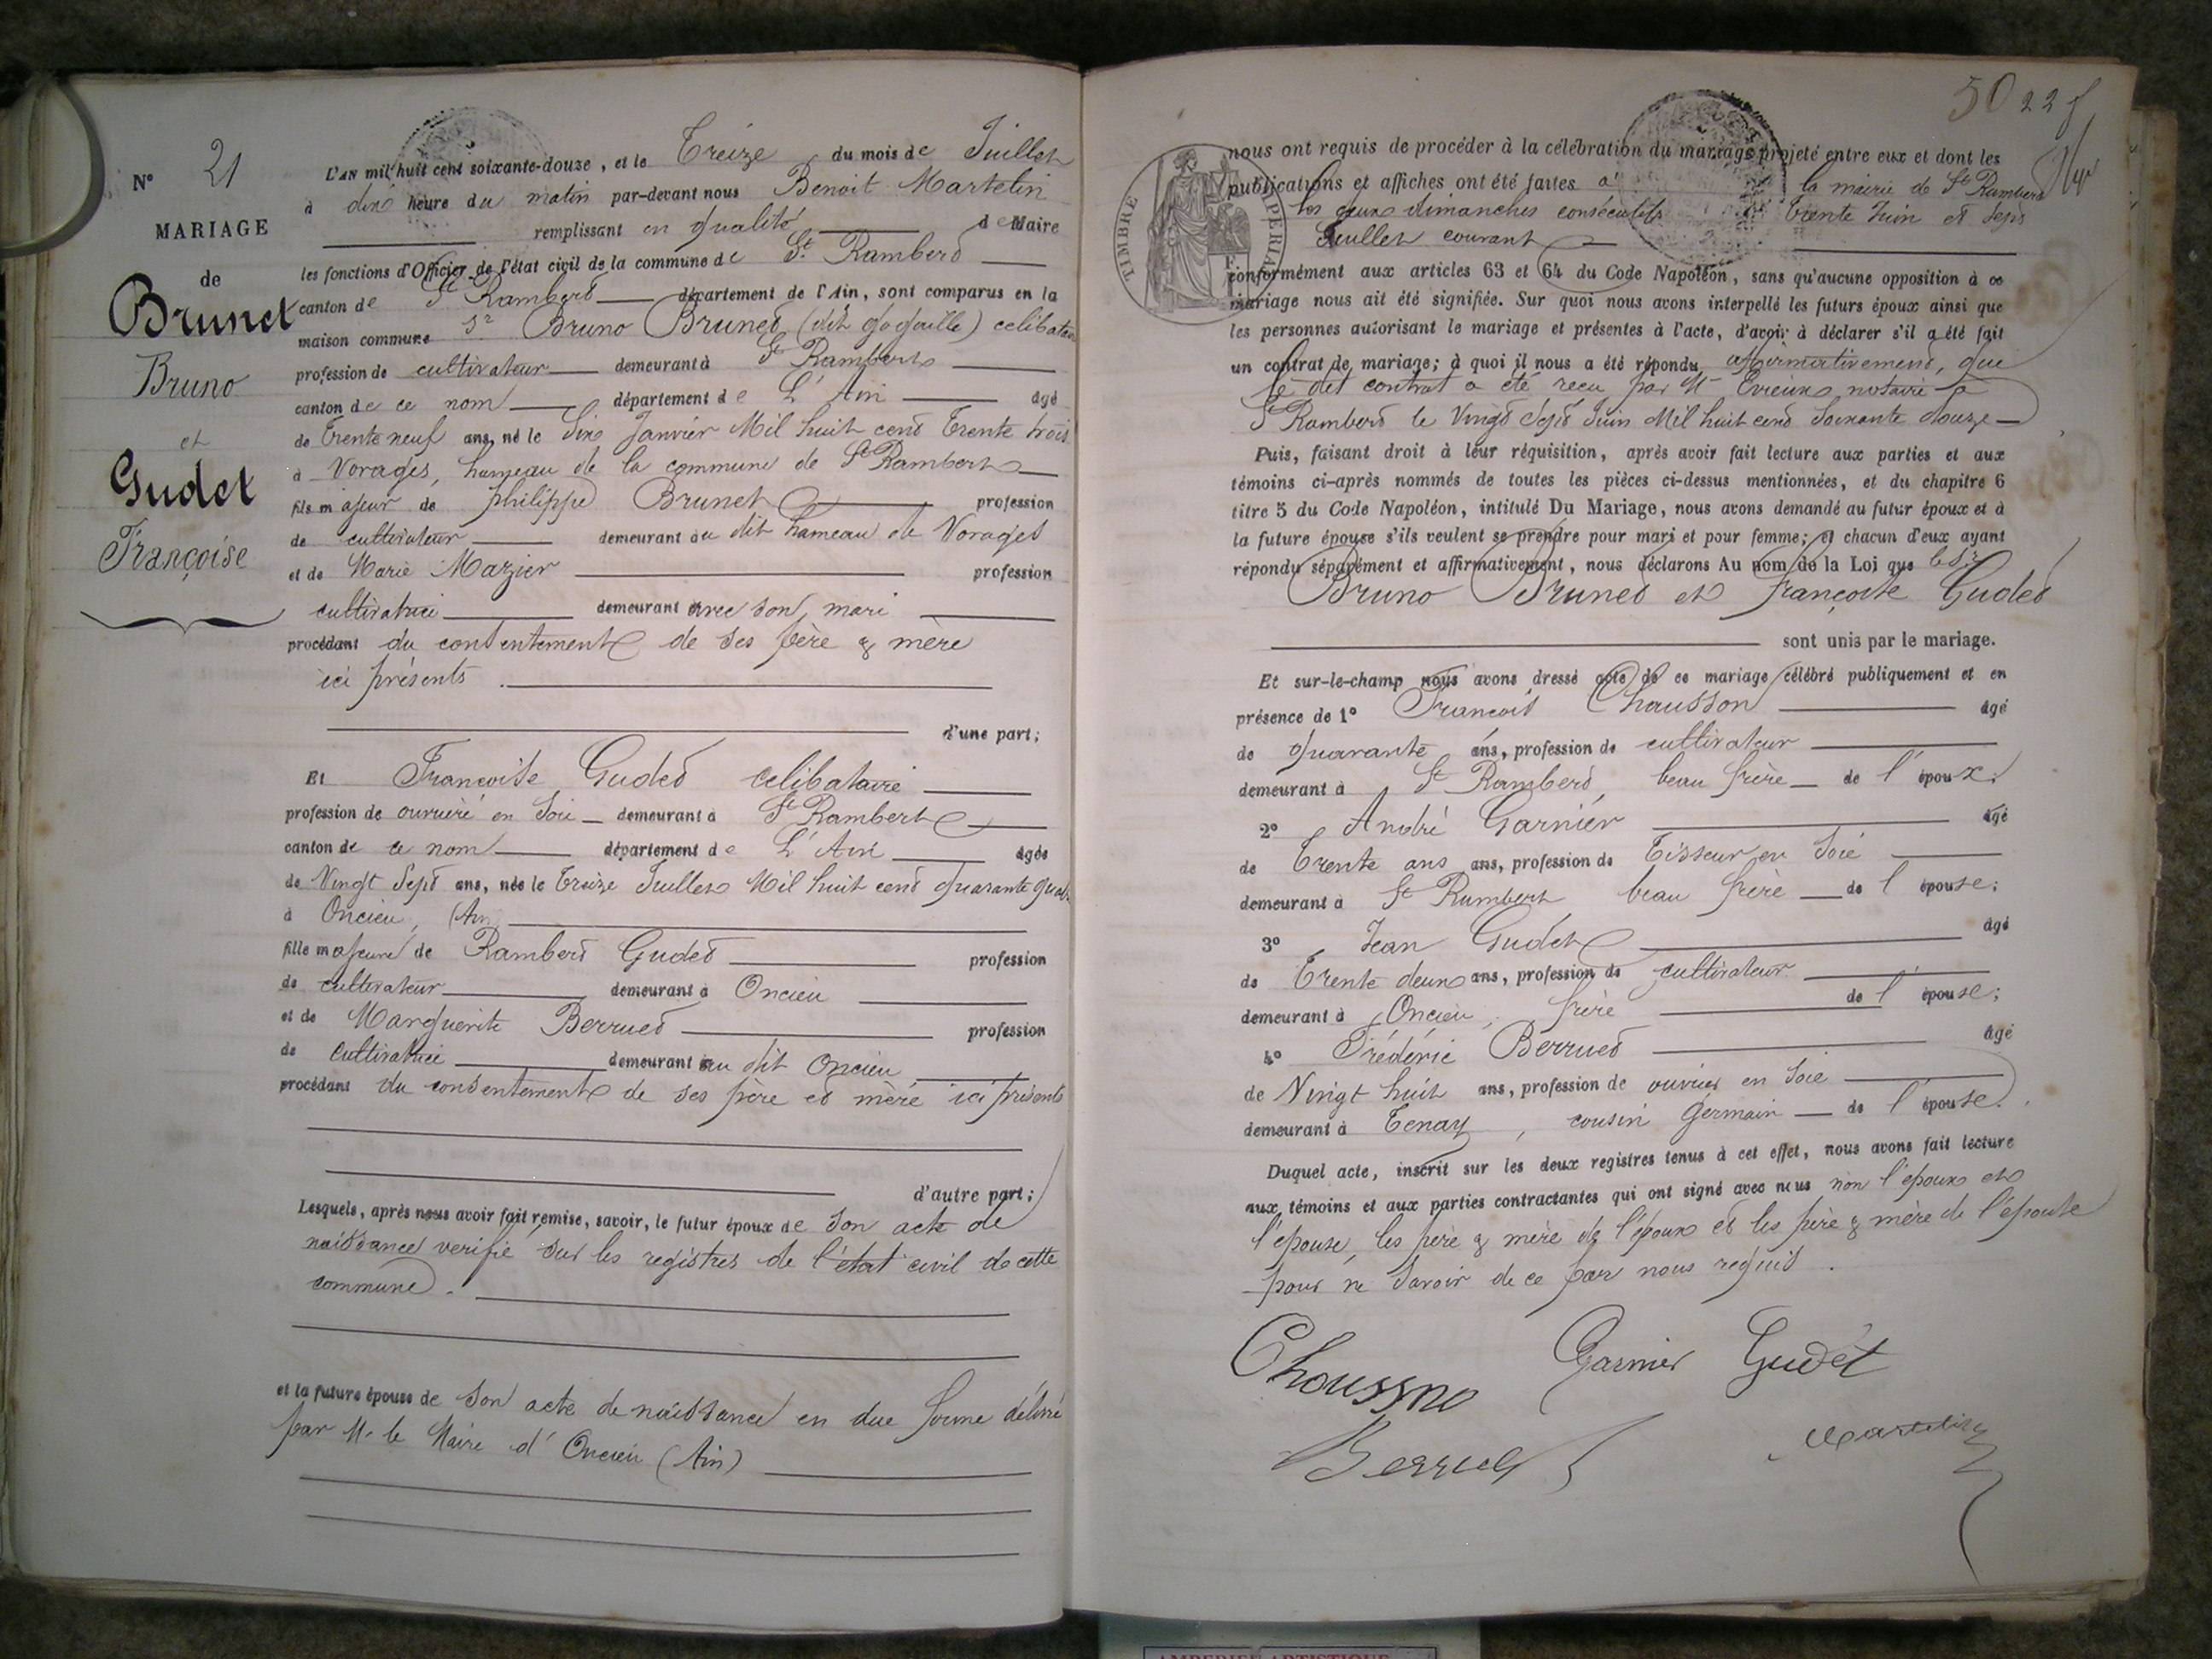 N° 21
MARIAGE
de
Brunet
Bruno
et
Gudet
Françoise
L'AN mil huit cent soixante-douze, et le Treize du mois de Juillet
à dix heure du matin par-devant nous Benoit Martelin
remplissant en qualité de Maire
les fonctions d'Officier de l'état civil de la commune de St Rambert
canton de St Rambert département de l'Ain, sont comparus en la
maison commune Sr Bruno Brunet (dit) celibataire
profession de cultivateur demeurant à St Rambert
canton de ce nom département de L'Ain âgé
de Trente neuf ans, né le Six Janvier Mil huit cent Trente trois
à Vorages, hameau de la commune de St Rambert
fils majeur de philippe Brunet profession
de cultivateur demeurant au dit hameau de Vorages
et de Marie Mazier profession
cultivatrice demeurant avec son mari
procédant du consentement de ses père & mère
ici présents
d'une part;
Et Francoise Gudet celibataire
profession de ouvrière en Soie demeurant à St Rambert
canton de ce nom département de L'Ain âgée
de Vingt Sept ans, née le Treize Juillet Mil huit cent quarante quatre
à Oncieu, (Ain)
fille majeure de Rambert Gudet profession
de cultivateur demeurant à Oncieu
et de Marguerite Berruet profession
de cultivatrice demeurant au dit Oncieu
procédant du consentement de ses père et mère ici présents
d'autre part;
Lesquels, après nous avoir fait remise, savoir, le futur époux de son acte de
naissance verifié sur les registres de l'état civil de cette
commune.
et la future épouse de son acte de naissance en due forme délivré
par M. le Maire d'Oncieu (Ain)
50 22
TIMBRE IMPERIAL
nous ont requis de procéder à la célébration du mariage projeté entre eux et dont les
publications et affiches ont été faites à la mairie de St Rambert
les deux dimanches consécutifs Trente Juin et Sept
Juillet courant
conformément aux articles 63 et 64 du Code Napoléon, sans qu'aucune opposition à ce
mariage nous ait été signifiée. Sur quoi nous avons interpellé les futurs époux ainsi que
les personnes autorisant le mariage et présentes à l'acte, d'avoir à déclarer s'il a été fait
un contrat de mariage; à quoi il nous a été répondu affirmativement, que
le dit contrat a été reçu par Me Evieux notaire à
St Rambert le Vingt Sept Juin Mil huit cent Soixante douze
Puis, faisant droit à leur réquisition, après avoir fait lecture aux parties et aux
témoins ci-après nommés de toutes les pièces ci-dessus mentionnées, et du chapitre 6
titre 5 du Code Napoléon, intitulé Du Mariage, nous avons demandé au futur époux et à
la future épouse s'ils veulent se prendre pour mari et pour femme; et chacun d'eux ayant
répondu séparément et affirmativement, nous déclarons Au nom de la Loi que le Sr
Bruno Brunet et Françoise Gudet
sont unis par le mariage.
Et sur-le-champ nous avons dressé acte de ce mariage célébré publiquement et en
présence de 1° Francois Chausson âgé
de quarante ans, profession de cultivateur
demeurant à St Rambert, beau frère de l'époux.
2° André Garnier âgé
de Trente ans ans, profession de Tisseur en Soie
demeurant à St Rambert beau frère de l'épouse;
3° Jean Gudet âgé
de Trente deux ans, profession de cultivateur
demeurant à Oncieu, frère de l'épouse;
4° Frédéric Berruet âgé
de Vingt huit ans, profession de ouvrier en Soie
demeurant à Tenay, cousin germain de l'épouse.
Duquel acte, inscrit sur les deux registres tenus à cet effet, nous avons fait lecture
aux témoins et aux parties contractantes qui ont signé avec nous non l'époux et
l'épouse, les père & mère de l'époux et les père & mère de l'épouse
pour ne savoir de ce par nous requis.
Choussno Garnier Gudet
Berruet Martelin
AMBERIEU ARTISTIQUE